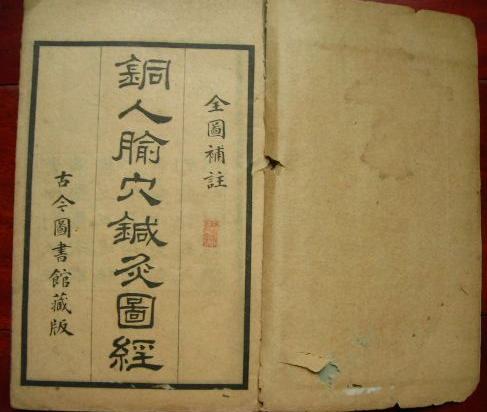 全圖補註
銅人腧穴鍼灸圖經
古今圖書館藏版